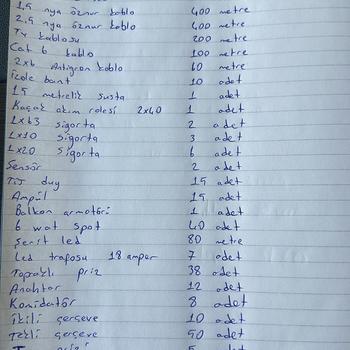 1,5 nya öznur kablo 400 metre
2,5 nya öznur kablo 400 metre
Tv kablosu 200 metre
Cat 6 kablo 100 metre
2x6 Antigron kablo 60 metre
izole bant 10 adet
15 metrelik susta 1 adet
Kaçak akım rolesi 2x40 1 adet
1x63 sigorta 2 adet
1x10 sigorta 3 adet
1x20 sigorta 6 adet
Sensör 2 adet
duy 15 adet
Ampül 15 adet
Balkon armatörü 1 adet
6 wat spot 40 adet
Şerit led 80 metre
Led trafosu 18 amper 7 adet
Topraklı priz 38 adet
Anahtar 12 adet
Komidatör 8 adet
ikili çerçeve 10 adet
Tekli çerçeve 50 adet